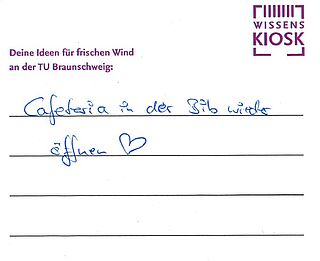 WISSENS
KIOSK
Deine Ideen für frischen Wind
an der TU Braunschweig:
Cafeteria in der Bib wieder
öffnen ♡